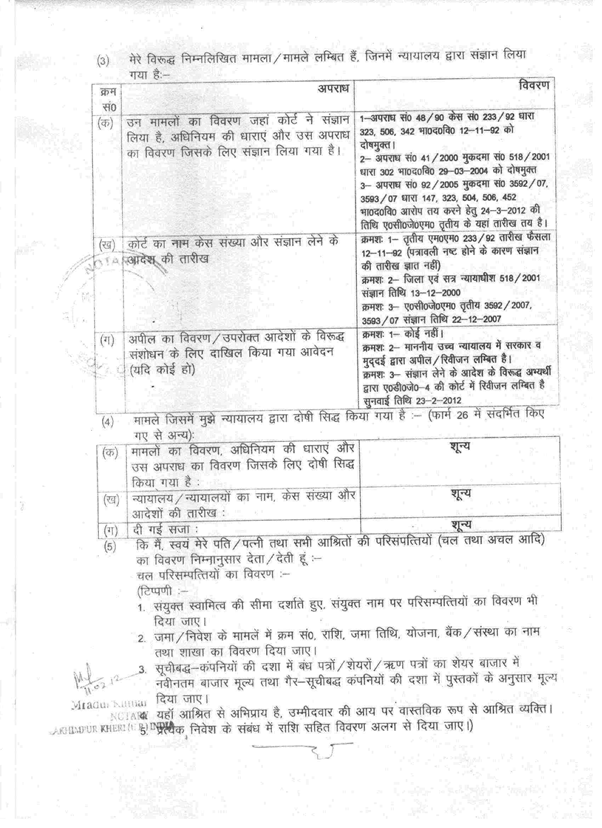 (3) मेरे विरूद्ध निम्नलिखित मामला/मामले लम्बित हैं, जिनमें न्यायालय द्वारा संज्ञान लिया
गया है:–
क्रम सं0
अपराध
विवरण
(क) उन मामलों का विवरण जहां कोर्ट ने संज्ञान
लिया है, अधिनियम की धाराएं और उस अपराध
का विवरण जिसके लिए संज्ञान लिया गया है।
1–अपराध सं0 48/90 केस सं0 233/92 धारा
323, 506, 342 भा0द0वि0 12–11–92 को
दोषमुक्त।
2– अपराध सं0 41/2000 मुकदमा सं0 518/2001
धारा 302 भा0द0वि0 29–03–2004 को दोषमुक्त
3– अपराध सं0 92/2005 मुकदमा सं0 3592/07,
3593/07 धारा 147, 323, 504, 506, 452
भा0द0वि0 आरोप तय करने हेतु 24–3–2012 की
तिथि ए0सी0जे0एम0 तृतीय के यहां तारीख तय है।
(ख) कोर्ट का नाम केस संख्या और संज्ञान लेने के
आदेश की तारीख
क्रमशः 1– तृतीय एम0एम0 233/92 तारीख फैसला
12–11–92 (पत्रावली नष्ट होने के कारण संज्ञान
की तारीख ज्ञात नहीं)
क्रमशः 2– जिला एवं सत्र न्यायाधीश 518/2001
संज्ञान तिथि 13–12–2000
क्रमशः 3– ए0सी0जे0एम0 तृतीय 3592/2007,
3593/07 संज्ञान तिथि 22–12–2007
(ग) अपील का विवरण/उपरोक्त आदेशों के विरूद्ध
संशोधन के लिए दाखिल किया गया आवेदन
(यदि कोई हो)
क्रमशः 1– कोई नहीं।
क्रमशः 2– माननीय उच्च न्यायालय में सरकार व
मुद्दई द्वारा अपील/रिवीजन लम्बित है।
क्रमशः 3– संज्ञान लेने के आदेश के विरूद्ध अभ्यर्थी
द्वारा ए0डी0जे0–4 की कोर्ट में रिवीजन लम्बित है
सुनवाई तिथि 23–2–2012
(4) मामले जिसमें मुझे न्यायालय द्वारा दोषी सिद्ध किया गया है :– (फार्म 26 में संदर्भित किए
गए से अन्य):
(क) मामलों का विवरण, अधिनियम की धाराएं और
उस अपराध का विवरण जिसके लिए दोषी सिद्ध
किया गया है :
शून्य
(ख) न्यायालय/न्यायालयों का नाम, केस संख्या और
आदेशों की तारीख :
शून्य
(ग) दी गई सजा :
शून्य
(5) कि मैं, स्वयं मेरे पति/पत्नी तथा सभी आश्रितों की परिसंपत्तियों (चल तथा अचल आदि)
का विवरण निम्नानुसार देता/देती हूं :–
चल परिसम्पत्तियों का विवरण :–
(टिप्पणी :–
1. संयुक्त स्वामित्व की सीमा दर्शाते हुए, संयुक्त नाम पर परिसम्पत्तियों का विवरण भी
दिया जाए।
2. जमा/निवेश के मामलें में क्रम सं0, राशि, जमा तिथि, योजना, बैंक/संस्था का नाम
तथा शाखा का विवरण दिया जाए।
3. सूचीबद्ध–कंपनियों की दशा में बंध पत्रों/शेयरों/ऋण पत्रों का शेयर बाजार में
नवीनतम बाजार मूल्य तथा गैर–सूचीबद्ध कंपनियों की दशा में पुस्तकों के अनुसार मूल्य
दिया जाए।
4. यहाँ आश्रित से अभिप्राय है, उम्मीदवार की आय पर वास्तविक रूप से आश्रित व्यक्ति।
5. प्रत्येक निवेश के संबंध में राशि सहित विवरण अलग से दिया जाए।)
11.02.12
Mradul Kumar
NOTARY
LAKHIMPUR KHERI (U.P.) INDIA